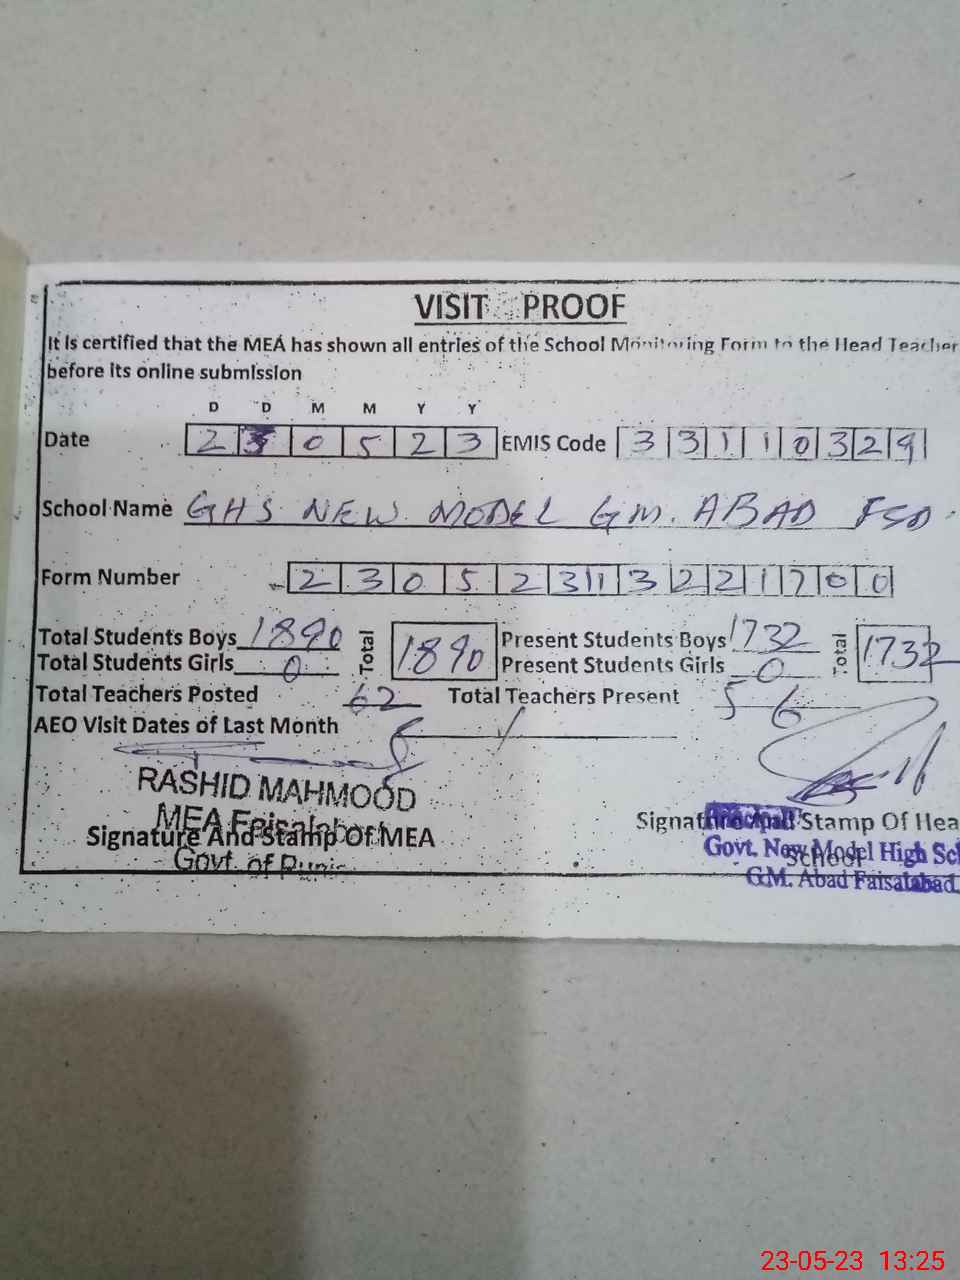 VISIT PROOF
It is certified that the MEA has shown all entries of the School Monitoring Form to the Head Teacher
before its online submission
D D M M Y Y
Date 2 3 0 5 2 3 EMIS Code 3 3 1 1 0 3 2 9
School Name GHS NEW MODEL G.M. ABAD FSD
Form Number 2 3 0 5 2 3 1 1 3 2 2 1 7 0 0
Total Students Boys 1890 Total 1890 Present Students Boys 1732 Total 1732
Total Students Girls 0 Present Students Girls 0
Total Teachers Posted 62 Total Teachers Present 56
AEO Visit Dates of Last Month
RASHID MAHMOOD
MEA Faisalabad
Signature And Stamp Of MEA
Govt. of
Principal
Stamp Of
Govt. New Model High
School
G.M. Abad Faisalabad.
23-05-23 13:25